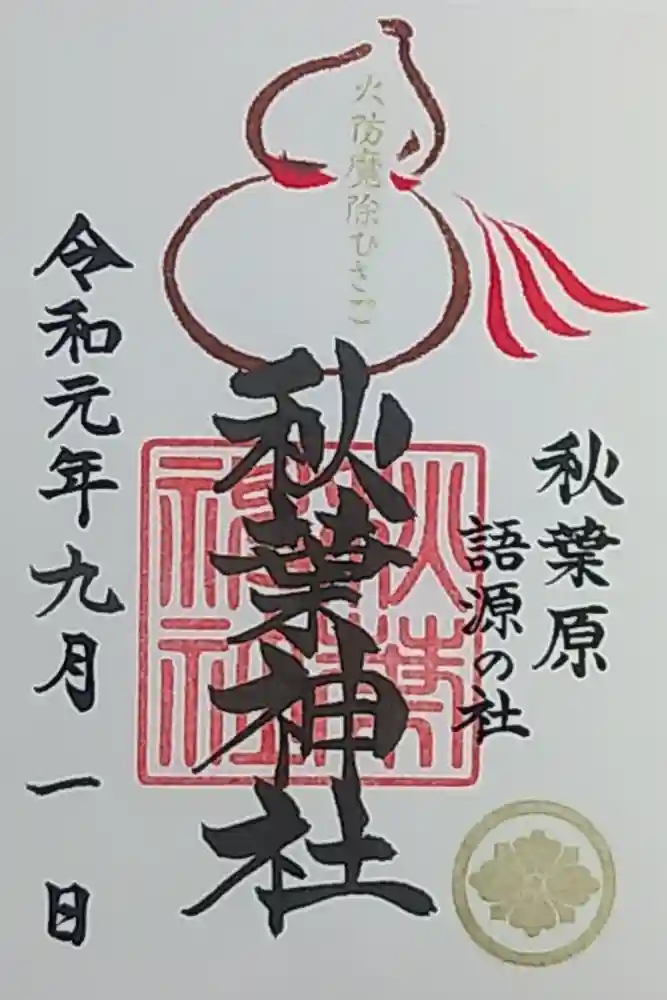 火防魔除ひさご
秋葉原
語源の社
秋葉神社
秋葉神社
令和元年九月一日